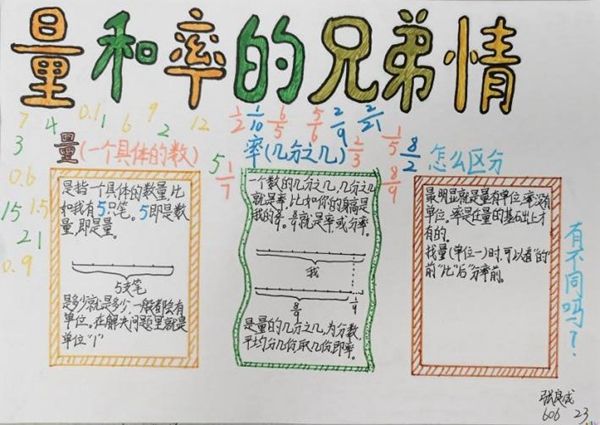 量和率的兄弟情
7 4 0.1 1 6 9 2 12
1/2 1/10 6/5 5/6 2/9 2/21
3 量(一个具体的数) 5 1/7 率(几分之几) 1/3 1/5 8/9 8/2 怎么区分
0.6
15 1.5
21
0.9
是指一个具体的数量,比
如我有5支笔。5即是数
量,即是量。
5支笔
是多少就是多少,一般都会有
单位。在解决问题里就是
单位"1"
一个数的几分之几,几分之几
就是率,比如你的身高是
我的8/9。8/9就是率或分率。
我
8/9 1/9
是量的几分之几,为分数,
平均分几份取几份即率。
最明显就是量有单位,率没有
单位。率是在量的基础上才
有的。
找量(单位一)时,可以看"的"
前"比"后"分率前。
有不同吗?
606 23